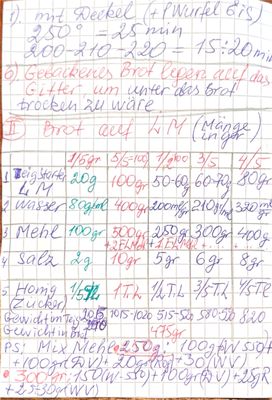 1). mit Deckel (+1 Würfel Eis)
250° = 25 min
200-210-220 = 15÷20 min
6). Gebackenes Brot legen auf das
Gitter, um unter das Brot
trocken zu wäre.
II Brot auf LM (Mänge in gr)
1/5gr 5/5-100% 3/5 4/5
1 LM 20g 100gr 50-60g 60-70g 80gr
2 Wasser 80g/ml 400gr 200ml/gr 320ml gr
3 Mehl 100gr 500gr 250gr 300gr 400gr
4 Salz 2g 10gr 5gr 6gr 8gr
5 Honig (Zucker) 1TL 1/2TL 3/5TL 4/5TL
Gewicht im 1015-1020 820
Gewicht im Brot 475gr
PS: Mix Mehle 250g: 100g(W550)
+100gr(DV)+20gr(R)+30(VV)
300gr: 150(W-550)+100gr(DV)+25gR
+25-30g(VV)